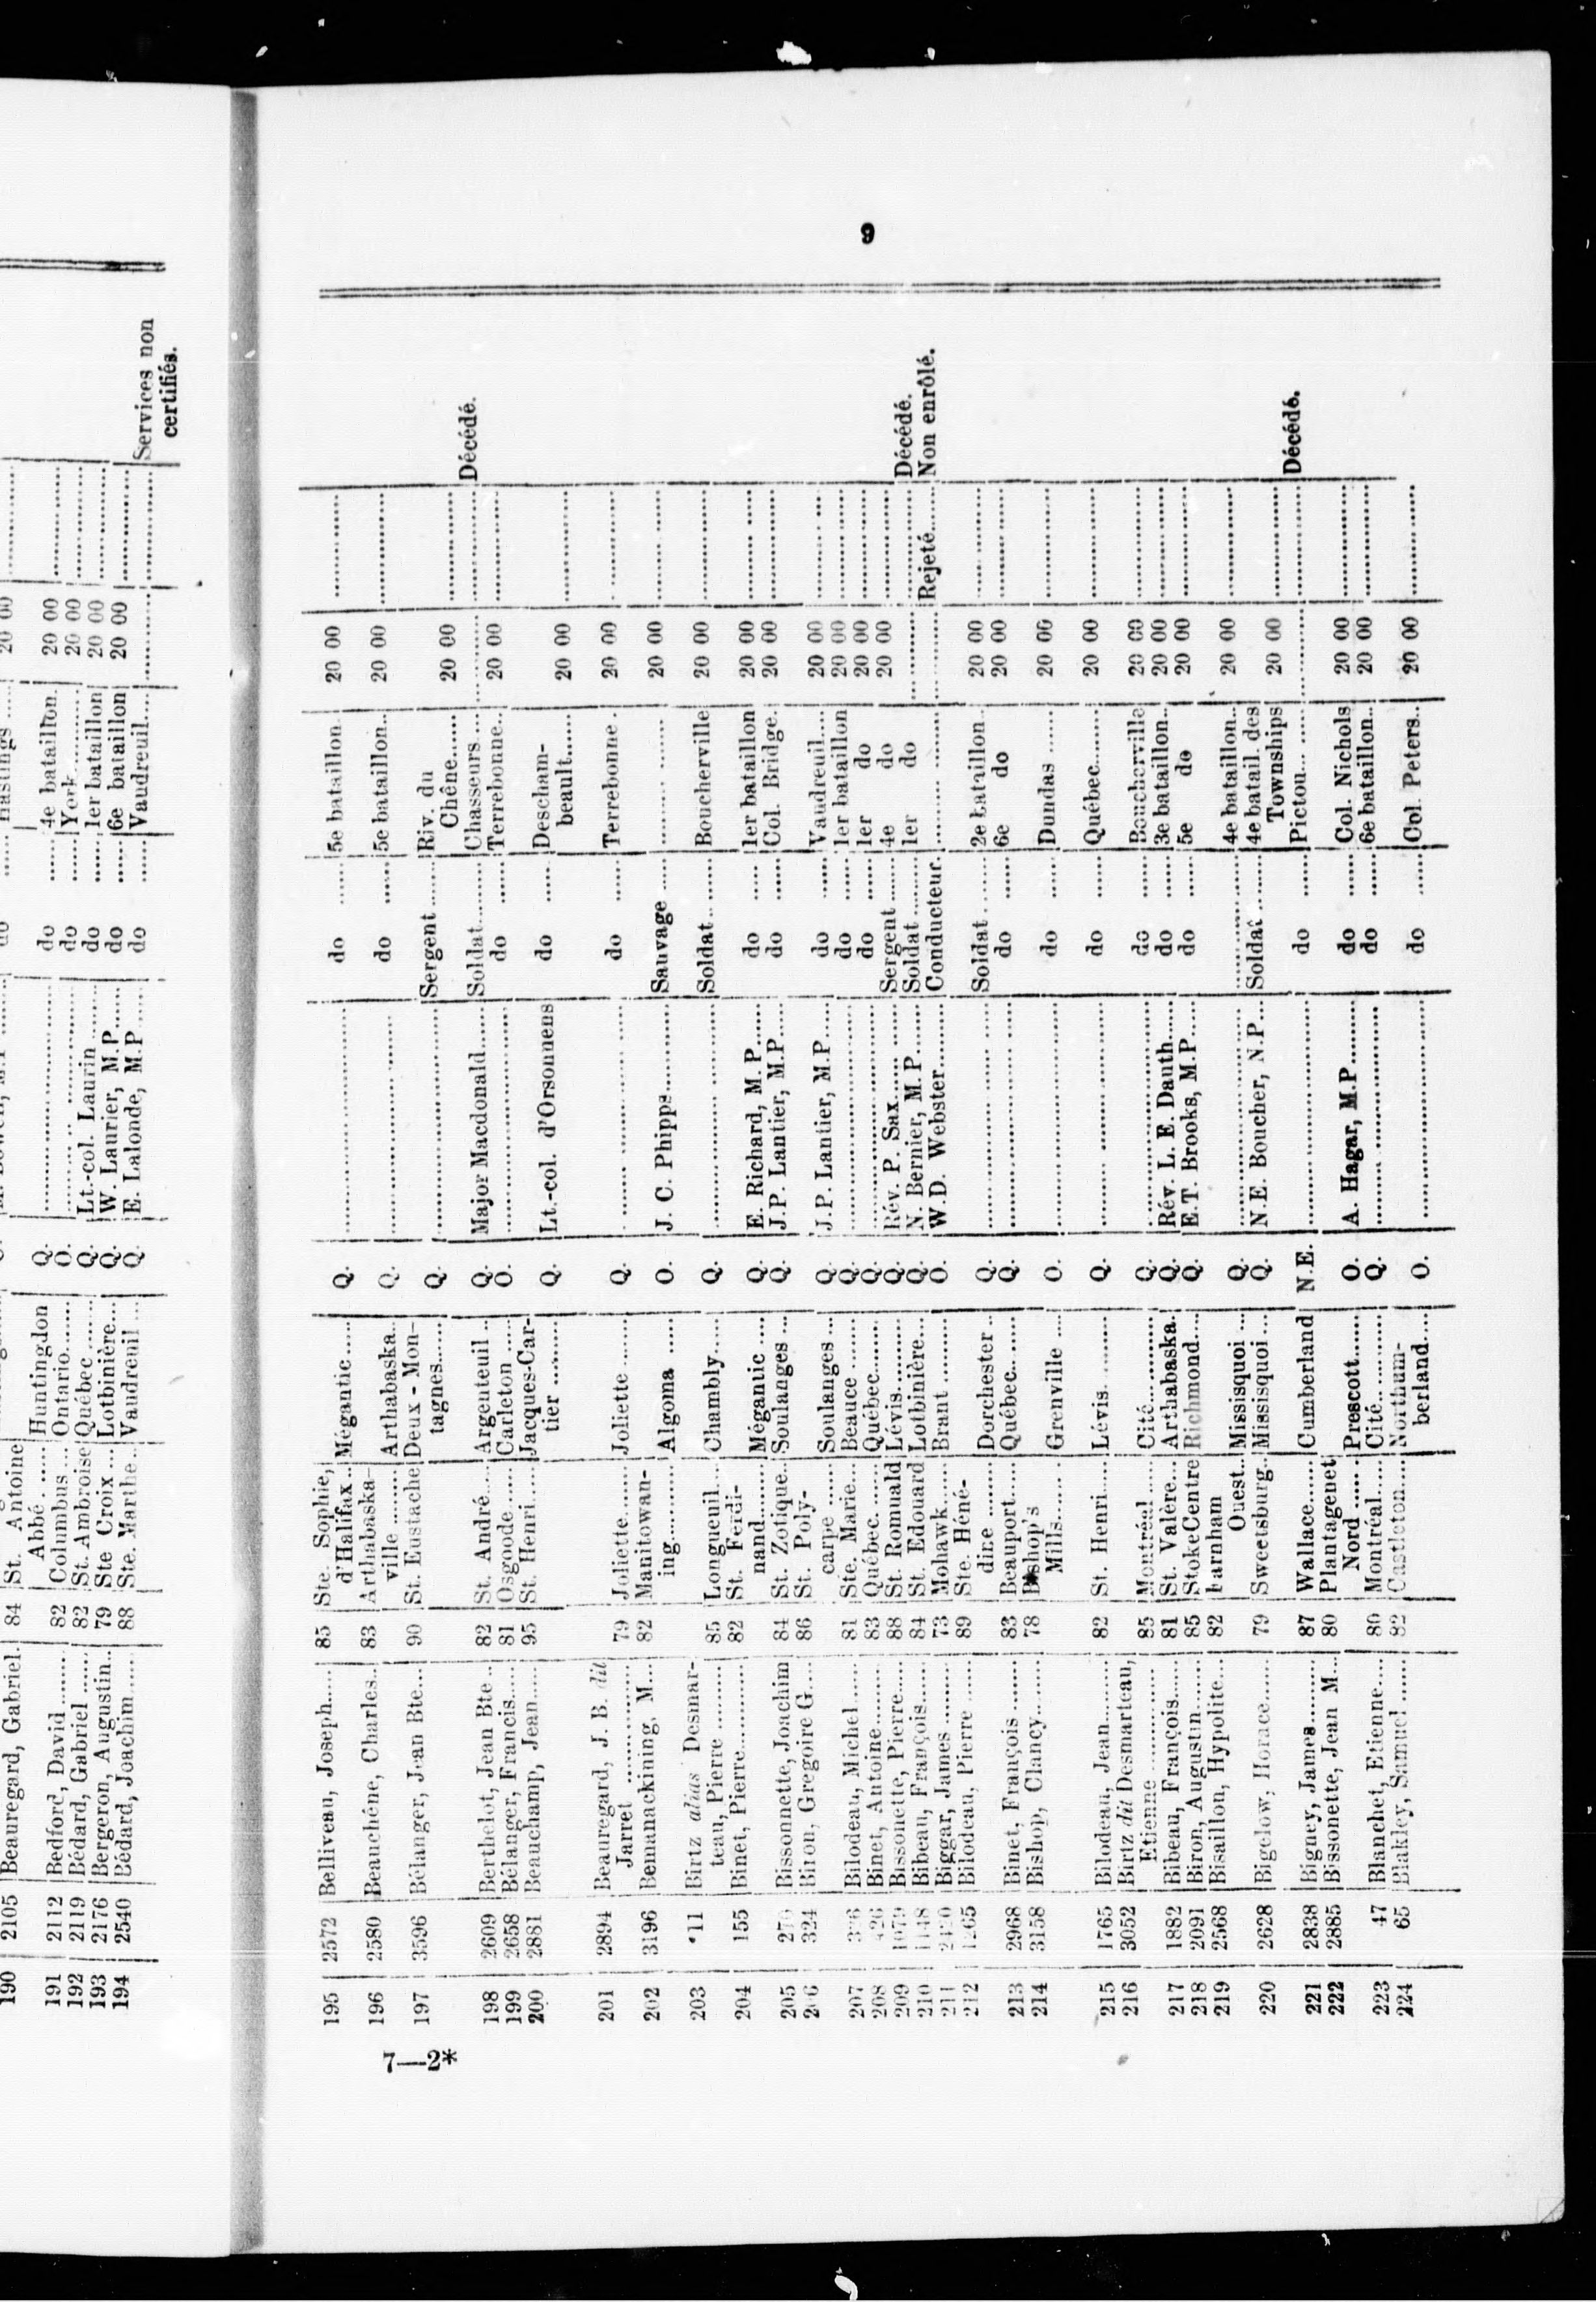 190 2105 Beauregard, Gabriel. 84 St. Antoine
Abbé ...... Huntingdon Q. ...... do ...... 4e bataillon. 20 00 ......
191 2112 Bedford, David ...... 82 Columbus ... Ontario...... O. ...... do ...... York ...... 20 00 ......
192 2119 Bédard, Gabriel ...... 82 St. Ambroise Québec ...... Q. Lt.-col. Laurin ...... do ...... 1er bataillon 20 00 ......
193 2176 Bergeron, Augustin.. 79 Ste Croix ... Lotbinière... Q. W. Laurier, M.P...... do ...... 6e bataillon 20 00 ......
194 2540 Bédard, Joachim ..... 88 Ste. Marthe.. Vaudreuil ... Q. E. Lalonde, M.P ...... do ...... Vaudreuil.... ...... ...... Services non
certifiés.
9
195 2572 Belliveau, Joseph..... 85 Ste. Sophie,
d'Halifax.. Mégantic..... Q. ...... do ...... 5e bataillon 20 00 ......
196 2580 Beauchéne, Charles.. 83 Arthabaska-
ville ........ Arthabaska.. Q. ...... do ...... 5e bataillon.. 20 00 ......
197 3596 Bélanger, Jean Bte... 90 St. Eustache Deux - Mon-
tagnes...... Q. ...... Sergent ...... Riv. du
Chêne...... 20 00 ......
198 2609 Berthelot, Jean Bte.. 82 St. André.... Argenteuil .. Q. Major Macdonald...... Soldat........ Chasseurs ... ...... ...... Décédé.
199 2658 Bélanger, Francis.... 81 Osgoode ..... Carleton ..... O. ...... do ...... Terrebonne.. 20 00 ......
200 2881 Beauchamp, Jean..... 95 St. Henri.... Jacques-Car-
tier ......... Q. Lt.-col. d'Orsonnens do ...... Descham-
beault....... 20 00 ......
201 2894 Beauregard, J. B. dit
Jarret .............. 79 Joliette....... Joliette ....... Q. ...... do ...... Terrebonne . 20 00 ......
202 3196 Bemanackining, M... 82 Manitowan-
ing........... Algoma ...... O. J. C. Phipps............ Sauvage ..... ...... 20 00 ......
203 Birtz alias Desmar-
teau, Pierre ........ 85 Longueuil... Chambly..... Q. ...... Soldat........ Boucherville 20 00 ......
204 155 Binet, Pierre........... 82 St. Ferdi-
nand........ Mégantic .... Q. E. Richard, M. P...... do ...... 1er bataillon 20 00 ......
205 Bissonnette, Joachim 84 St. Zotique.. Soulanges ... Q. J.P. Lantier, M.P..... do ...... Col. Bridge.. 20 00 ......
324 Biron, Gregoire G.... 86 St. Poly-
carpe ...... Soulanges ... Q. J.P. Lantier, M.P..... do ...... Vaudreuil.... 20 00 ......
207 Bilodeau, Michel ...... 81 Ste. Marie... Beauce ....... Q. ...... do ...... 1er bataillon 20 00 ......
208 Binet, Antoine......... 83 Québec....... Québec........ Q. ...... do ...... 1er do 20 00 ......
209 Bissonette, Pierre..... 88 St. Romuald Lévis.......... Q. Rév. P. Sax............ Sergent ...... 4e do 20 00 ......
210 Bibeau, François...... 84 St. Edouard Lotbinière... Q. N. Bernier, M. P...... Soldat ........ 1er do ...... ...... Décédé.
211 Biggar, James ........ 73 Mohawk...... Brant ......... O. W.D. Webster.......... Conducteur. ...... ...... Rejeté....... Non enrôlé.
212 Bilodeau, Pierre ...... 89 Ste. Héné-
dine ......... Dorchester .. Q. ...... Soldat ........ 2e bataillon.. 20 00 ......
213 2968 Binet, François ....... 83 Beauport..... Québec....... Q. ...... do ...... 6e do 20 00 ......
214 3158 Bishop, Clancy......... 78 Bishop's
Mills........ Grenville .... O. ...... do ...... Dundas ...... 20 00 ......
215 1765 Bilodeau, Jean.......... 82 St. Henri..... Lévis.......... Q. ...... do ...... Québec........ 20 00 ......
216 3052 Birtz dit Desmarteau,
Etienne .............. 85 Montréal..... Cité............ Q. ...... do ...... Boucherville 20 00 ......
217 1882 Bibeau, François...... 81 St. Valère... Arthabaska.. Q. Rév. L. E. Dauth...... do ...... 3e bataillon.. 20 00 ......
218 2091 Biron, Augustin........ 85 Stoke Centre Richmond.... Q. E.T. Brooks, M.P..... do ...... 5e do 20 00 ......
219 2568 Bisaillon, Hypolite... 82 Farnham
Ouest.. Missisquoi ... Q. ...... ...... 4e bataillon.. 20 00 ......
220 2628 Bigelow, Horace...... 79 Sweetsburg.. Missisquoi ... Q. N.E. Boucher, N.P... Soldat ........ 4e batail. des
Townships 20 00 ......
221 2838 Bigney, James......... 87 Wallace..... Cumberland N.E. ...... do ...... Pictou........ ...... ...... Décédé.
222 2885 Bissonette, Jean M... 80 Plantagenet
Nord ...... Prescott...... O. A. Hagar, M.P......... do ...... Col. Nichols 20 00 ......
223 47 Blanchet, Etienne.... 80 Montréal..... Cité............ Q. ...... do ...... 6e bataillon.. 20 00 ......
224 65 Blakley, Samuel ...... 82 Castleton..... Northum-
berland.... O. ...... do ...... Col. Peters.. 20 00 ......
7—2*